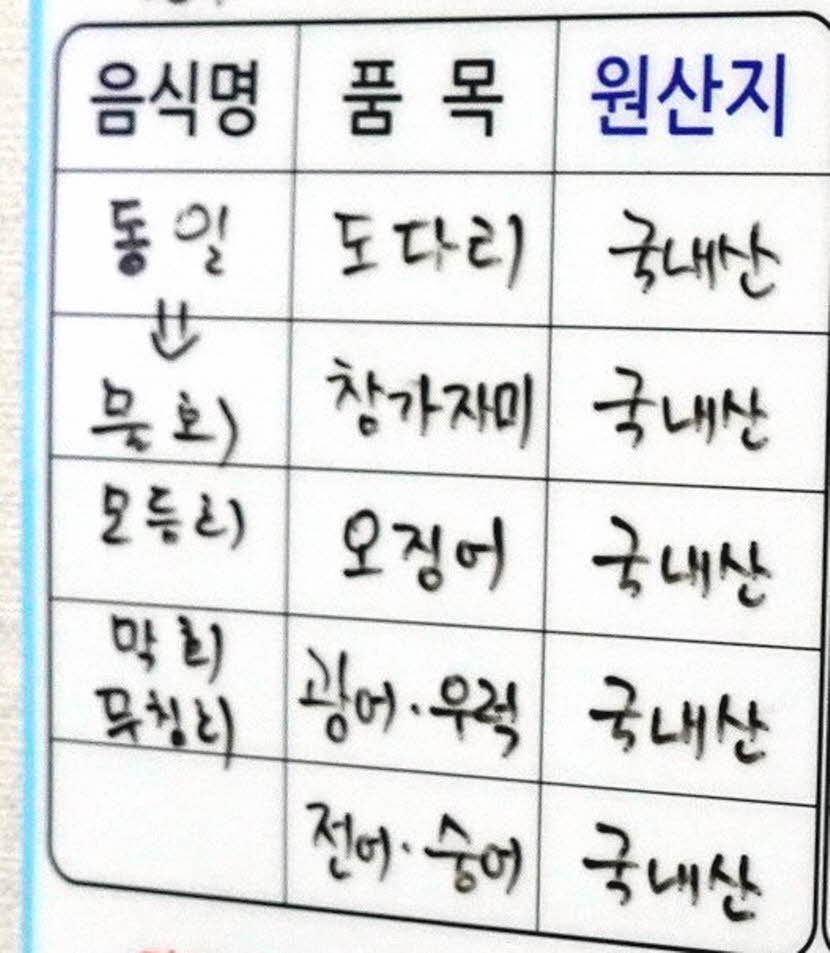 음식명 품 목 원산지
동일 도다리 국내산
⇓
물회 참가자미 국내산
모듬회 오징어 국내산
막회
무침회 광어·우럭 국내산
전어·숭어 국내산